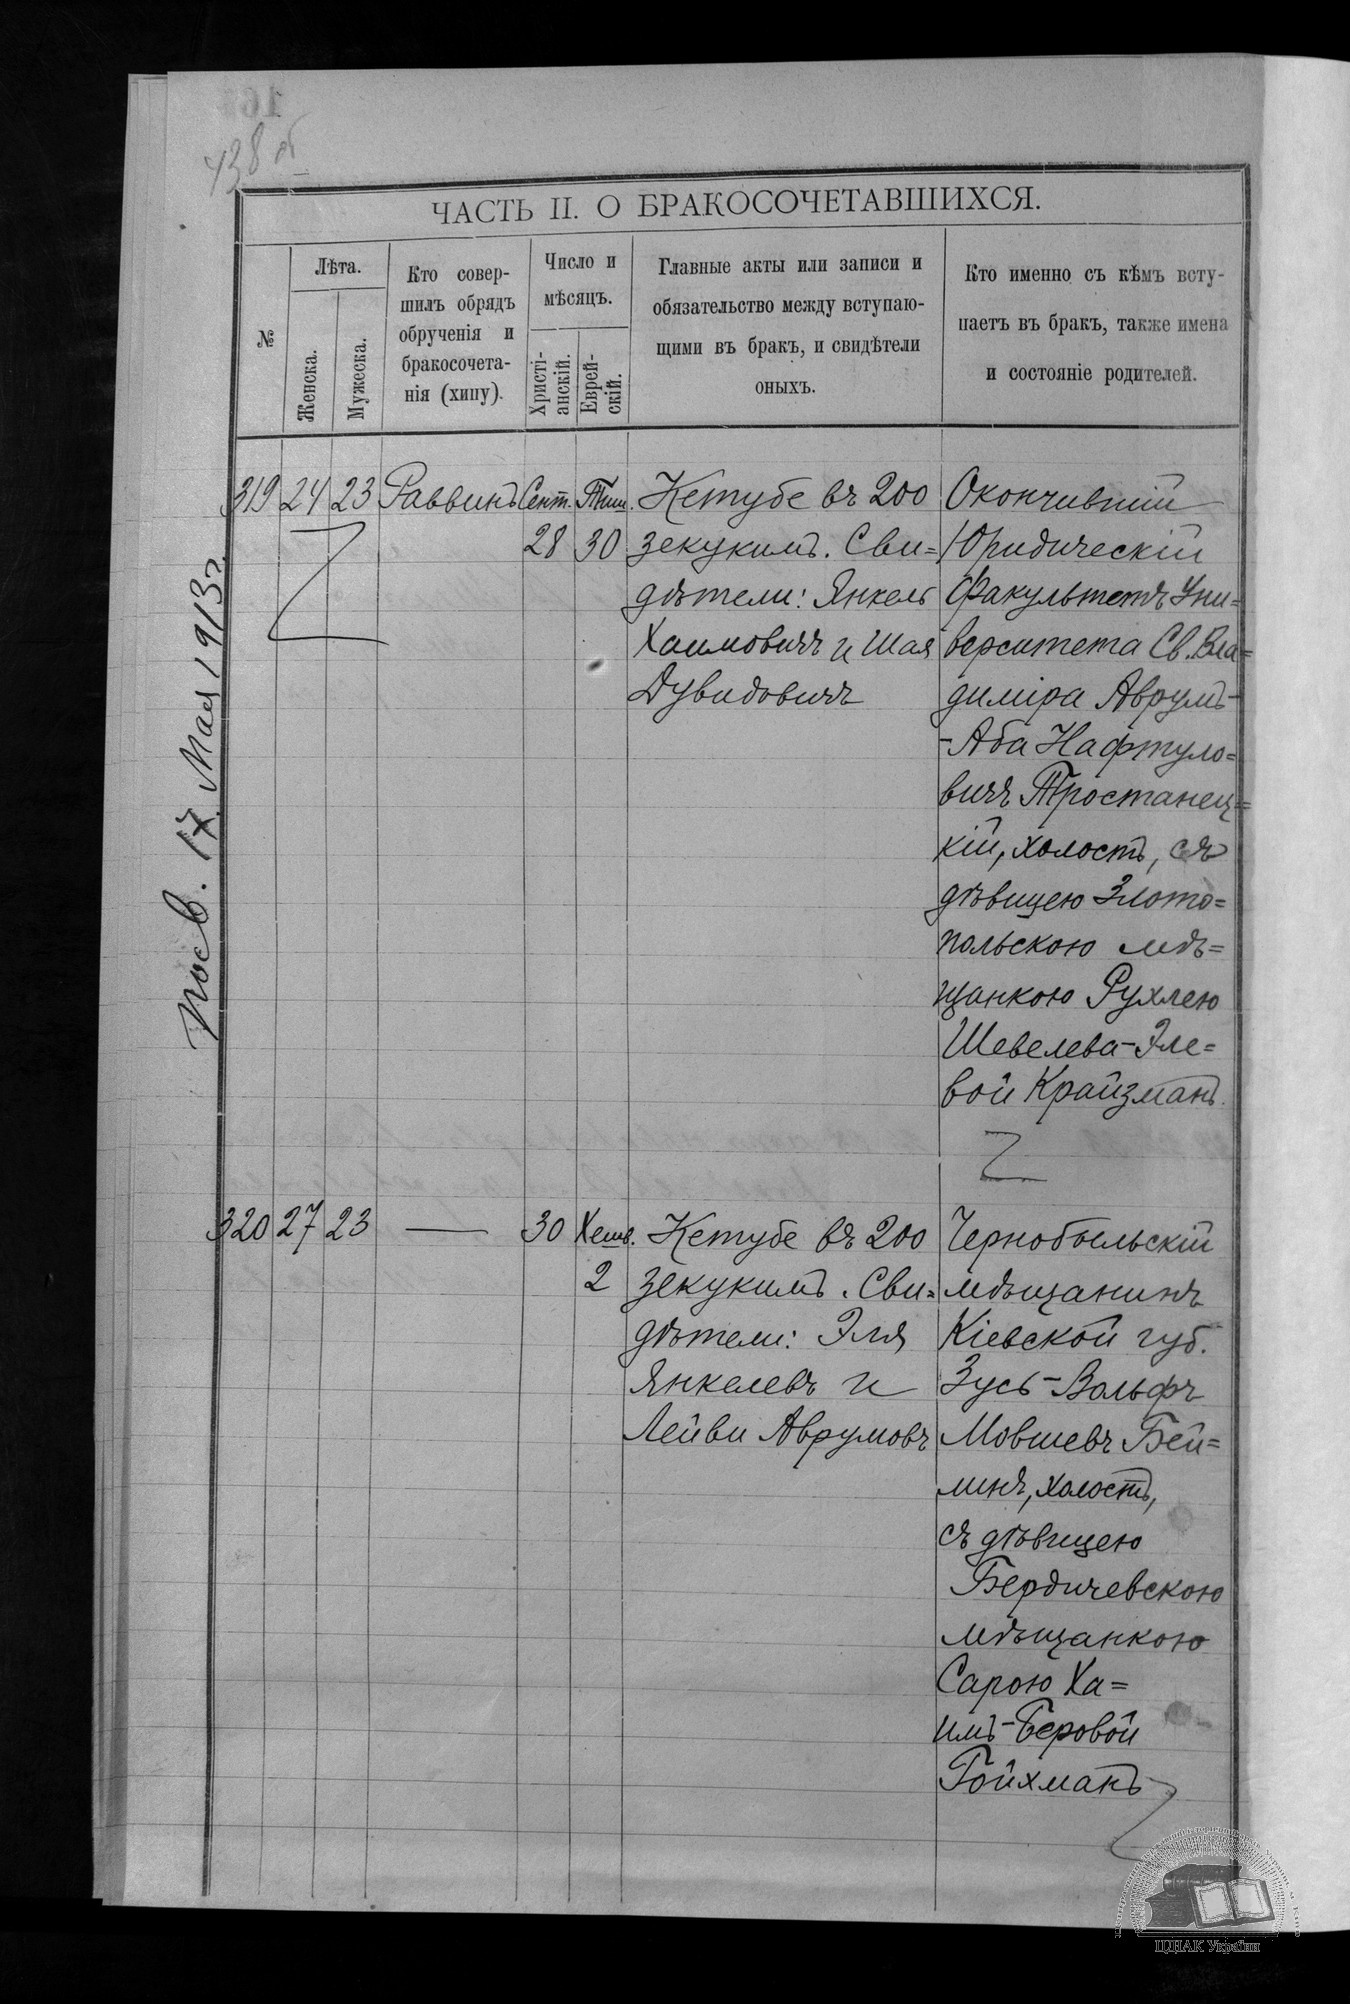 438 об
ЧАСТЬ II. О БРАКОСОЧЕТАВШИХСЯ.
№
Лѣта.
Женска.
Мужеска.
Кто совер-
шилъ обрядъ
обрученія и
бракосочета-
нія (хипу).
Число и
мѣсяцъ.
Христі-
анскій.
Еврей-
скій.
Главные акты или записи и
обязательство между вступаю-
щими въ бракъ, и свидѣтели
оныхъ.
Кто именно съ кѣмъ всту-
паетъ въ бракъ, также имена
и состояніе родителей.
319 24 23 Раввинъ Сент. Тиш.
28 30
Кетубе въ 200
зекукимъ. Сви=
дѣтели: Янкель
Хаимовичъ и Шая
Дувидовичъ
Окончившій
Юридическій
Факультетъ Уни=
верситета Св. Вла=
диміра Аврумъ-
-Аба Нафтуло=
вичъ Тростанец=
кій, холостъ, съ
дѣвицею Злото=
польскою мѣ=
щанкою Рухлею
Шевелева-Эле=
вой Крайзманъ.
17 Мая 1913 г.
320 27 23 — 30 Хешв.
2
Кетубе въ 200
зекукимъ. Сви=
дѣтели: Эля
Янкелевъ и
Лейви Аврумовъ
Чернобыльскій
мѣщанинъ
Кіевской губ.
Зусь-Вольфъ
Мовшевъ Бей=
линъ, холостъ,
съ дѣвицею
Бердичевскою
мѣщанкою
Сарою Ха=
имъ-Беровой
Гойхманъ
ЦДІАК України